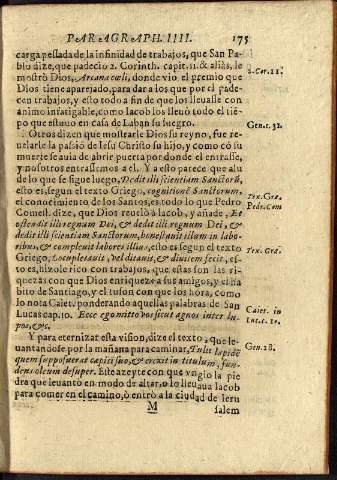 PARAGRAPH. IIII. 175
carga pessada de la infinidad de trabajos, que San Pa-
blo dize, que padecio 2. Corinth. capit. 11. & aliàs, le
mostrò Dios, Arcana cœli, donde vio el premio que
2. Cor. 11.
Dios tiene aparejado, para dar a los que por el pade-
cen trabajos, y esto todo a fin de que los lleuasse con
animo infatigable, como Iacob los lleuò todo el tiẽ-
po que estuuo en casa de Laban su suegro.
Gen. c. 31.
Otros dizen que mostrarle Dios su reyno, fue re-
uelarle la passiõ de Iesu Christo su hijo, y como cõ su
muerte se auia de abrir puerta por donde el entrasse,
y nosotros entrassemos a el. Y a esto parece que alu
de lo que se sigue luego, Dedit illi scientiam Sanctorũ,
esto es, segun el texto Griego, cognitionẽ Sanctorum,
Tex. Gra.
el conocimiento de los Santos, es todo lo que Pedro
Ped. Com
Comest. dize, que Dios reuelò a Iacob, y añade, Et
ostendit illi regnum Dei, & dedit illi regnum Dei, &
dedit illi scientiam Sanctorum, honestauit illum in labo-
ribus, & compleuit labores illius, esto es segun el texto
Tex. Gra.
Griego, Locupletauit, vel ditauit, & diuitem fecit, es-
to es, hizole rico con trabajos, que estas sun las ri-
quezas con que Dios enriqueze a sus amigos, y el ha
bito de Santiago, y el tuson con que los hora, como
lo nota Caiet. ponderando aquellas palabras de San
Caiet. in
Lucas cap. 10. Ecce ego mitto vos sicut agnos inter lu-
Luc. c. 10.
pos, &c.
Y para eternizar esta vision, dize el texto, que le-
uantandose por la mañana para caminar, Tulit lapidẽ
Gen. 28.
quem supposuerat capiti suo, & erexit in titulum, fun-
dens oleum desuper. Este azeyte con que vngio la pie
dra que leuantò en modo de altar, o lo lleuaua Iacob
para comer en el camino, ò entrò a la ciudad de Ieru
M salem